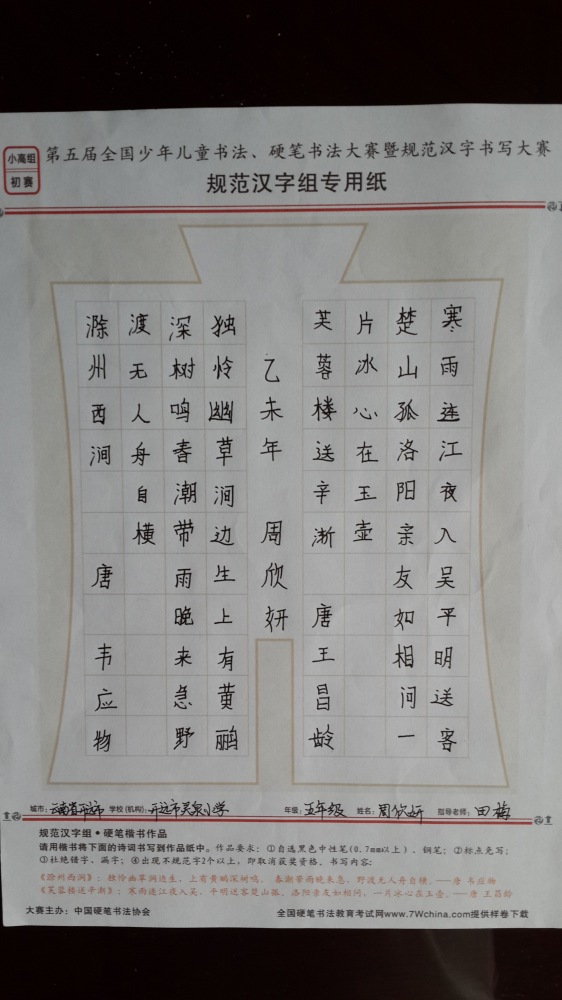 小高组
初赛
第五届全国少年儿童书法、硬笔书法大赛暨规范汉字书写大赛
规范汉字组专用纸
寒雨连江夜入吴平明送客
楚山孤洛阳亲友如相问一
片冰心在玉壶
芙蓉楼送辛渐 唐 王昌龄
乙未年 周欣妍
独怜幽草涧边生上有黄鹂
深树鸣春潮带雨晚来急野
渡无人舟自横
滁州西涧 唐 韦应物
城市：云南省开远市 学校(机构)：开远市灵泉小学 年级：五年级 姓名：周欣妍 指导老师：田梅
规范汉字组•硬笔楷书作品
请用楷书将下面的诗词书写到作品纸中。作品要求：①自选黑色中性笔(0.7mm以上)、钢笔；②标点免写；
③杜绝错字、漏字；④出现不规范字2个以上，即取消获奖资格。书写内容：
《滁州西涧》：独怜幽草涧边生，上有黄鹂深树鸣。 春潮带雨晚来急，野渡无人舟自横。——唐 韦应物
《芙蓉楼送辛渐》：寒雨连江夜入吴，平明送客楚山孤。洛阳亲友如相问，一片冰心在玉壶。——唐 王昌龄
大赛主办：中国硬笔书法协会 全国硬笔书法教育考试网www.7Wchina.com提供样卷下载